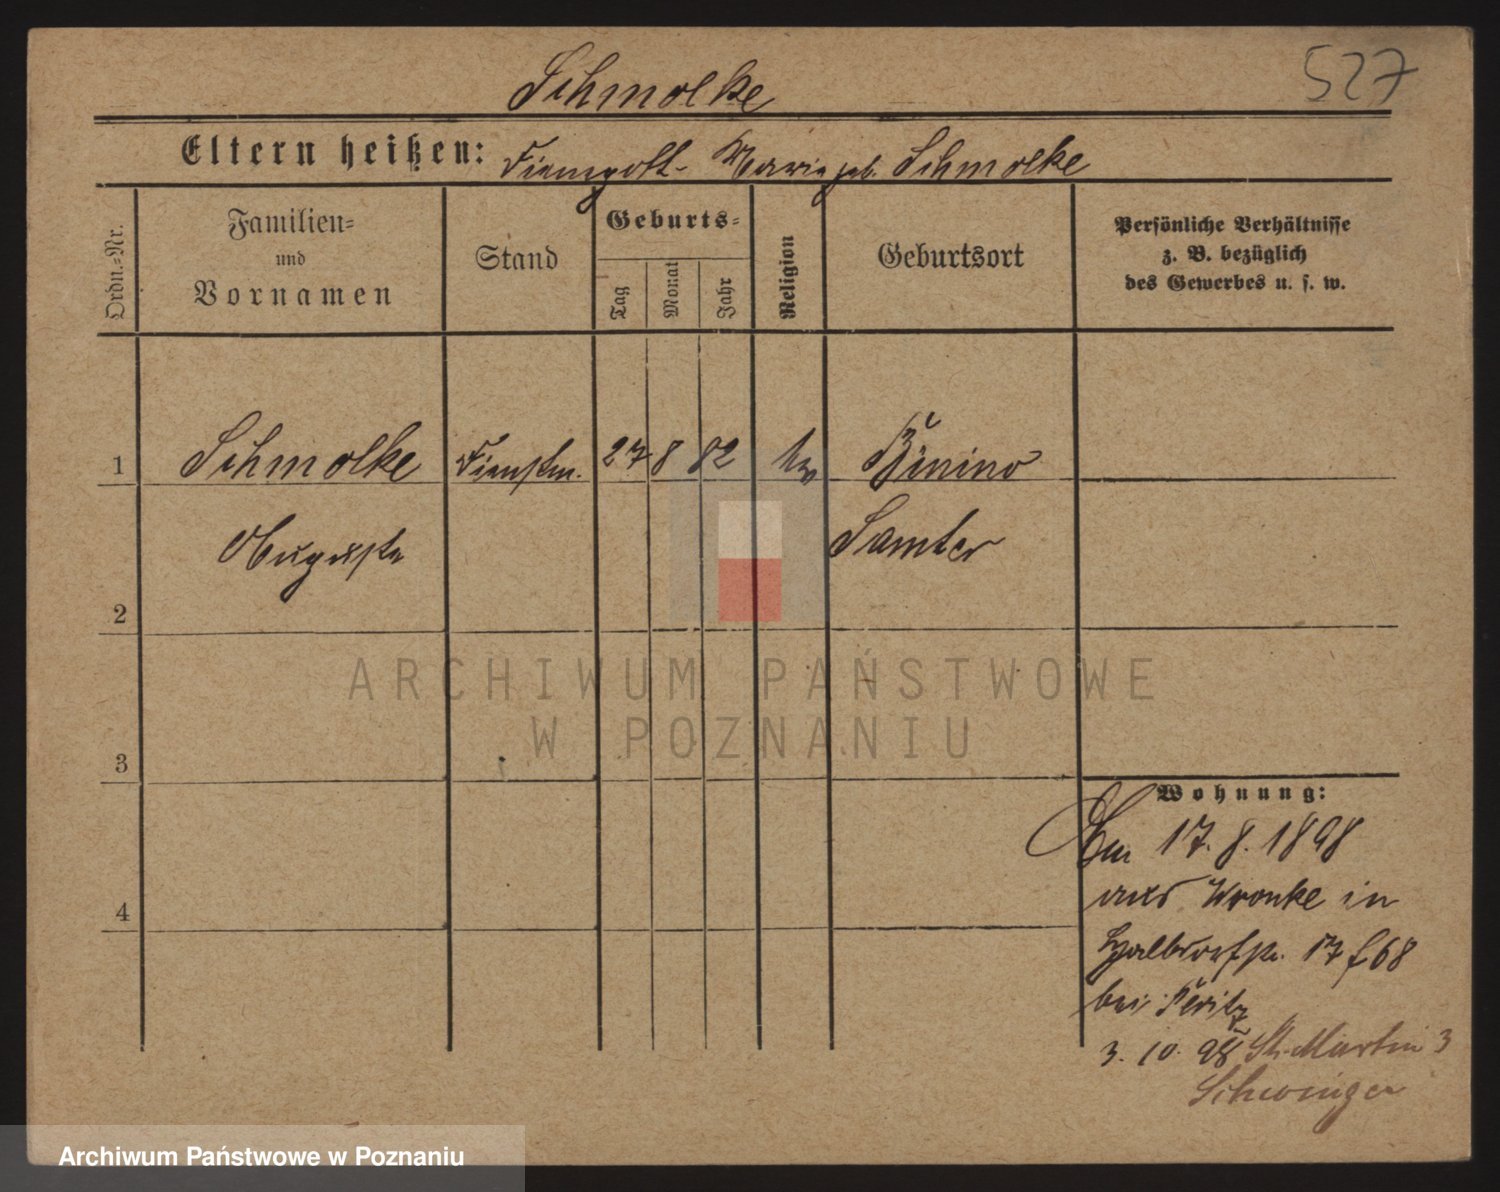 Schmolke
527
Eltern heißen: Marie geb. Schmolke
Ordn.-Nr.
Familien-
und
Vornamen
Stand
Geburts-
Tag
Monat
Jahr
Religion
Geburtsort
Persönliche Verhältnisse
z. B. bezüglich
des Gewerbes u. s. w.
1
Schmolke
Dienstm.
27
8
82
ev
Binino
Auguste
Samter
2
3
4
Wohnung:
Am 17. 8. 1898
aus Wronke in
Halbdorfstr. 17
bei
3. 10. 98 St. Martin 3
ARCHIWUM PAŃSTWOWE
W POZNANIU
Archiwum Państwowe w Poznaniu